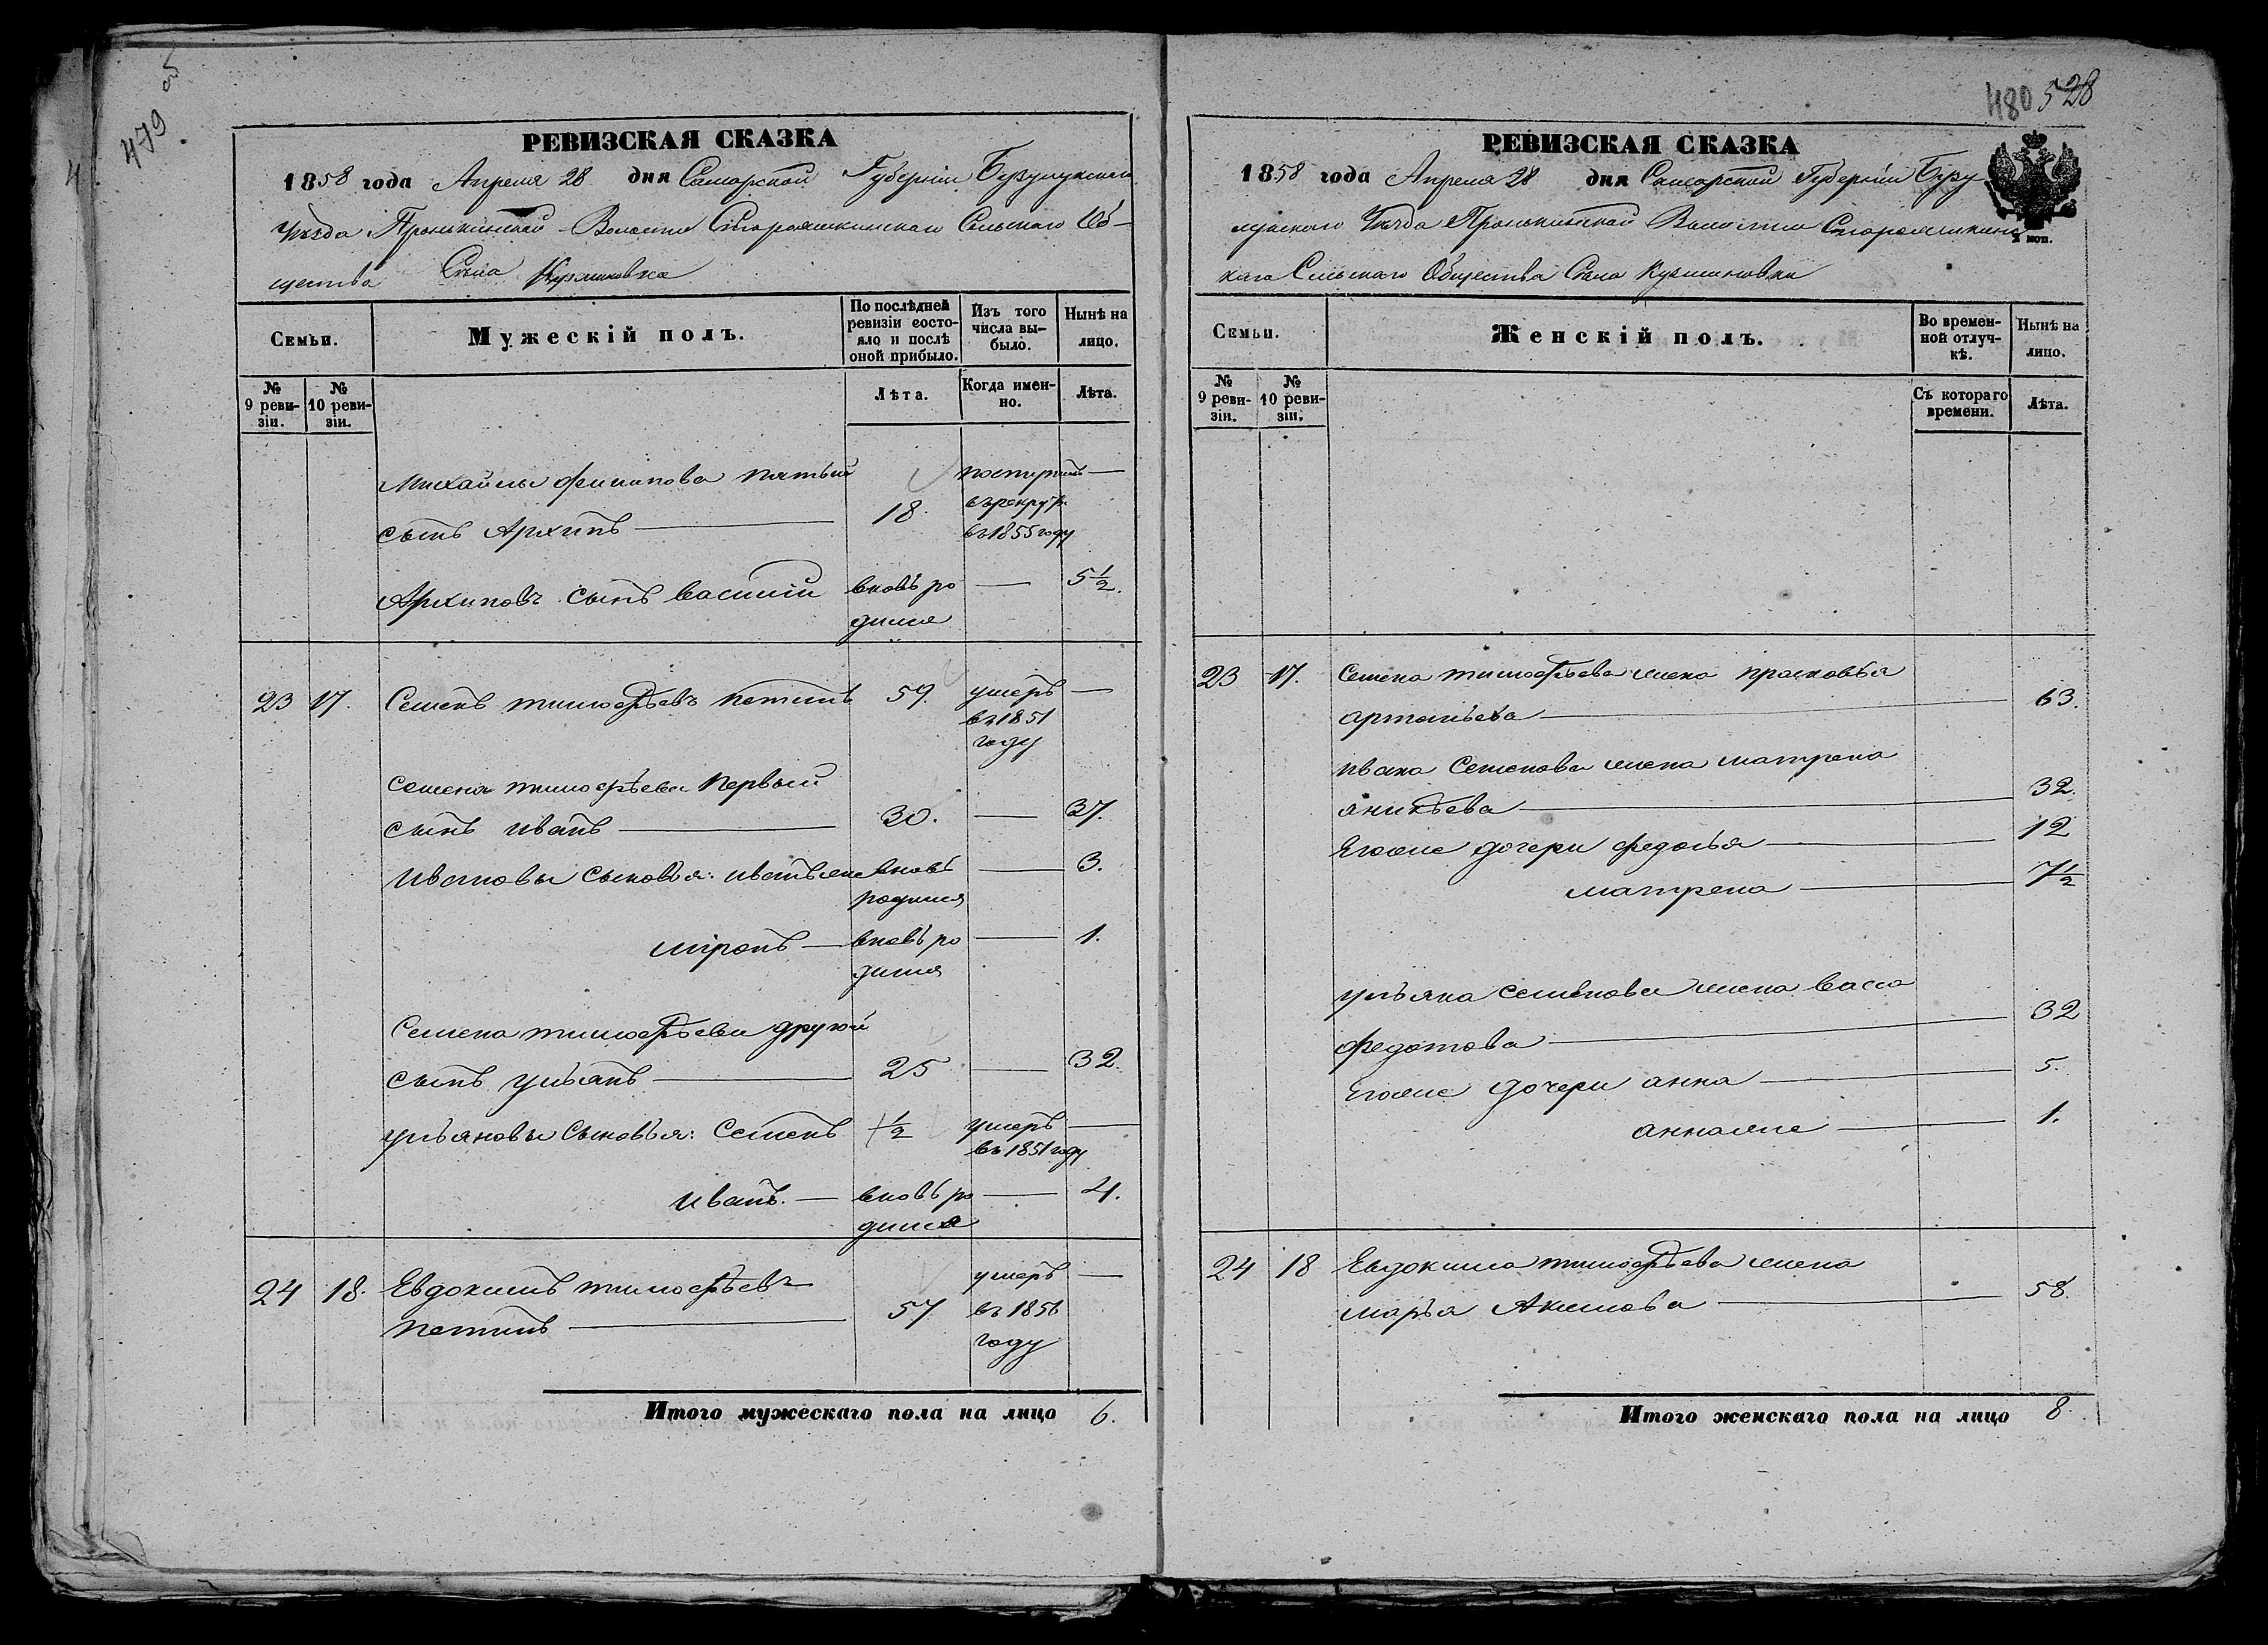 479
об
480 528
РЕВИЗСКАЯ СКАЗКА
1858 года Апреля 28 дня Самарской Губерніи Бузулукскаго
Уѣзда Пронькинской Волости Старояшкинскаго Сельскаго Об-
щества Села Кузминовка
Семьи.
Мужескій полъ.
По послѣдней ревизіи состояло и послѣ оной прибыло.
Изъ того числа вы-было.
Нынѣ на лицо.
№ 9 реви-зіи.
№ 10 реви-зіи.
Лѣта.
Когда имен-но.
Лѣта.
Михайлы Филипова пятый поступилъ —
сынъ Архипъ — 18. въ рекруты
въ 1855 году
Архиповъ сынъ Василій вновь ро — 5½.
дился
23 17. Семенъ Тимофѣевъ Петинъ 59. умеръ —
въ 1851
году
Семена Тимофѣева первый
сынъ Иванъ — 30. — 37.
Ивановы сыновья: Иванъ же вновь — 3.
родился
Миронъ — вновь ро — 1.
дился
Семена Тимофѣева другой
сынъ Ульянъ — 25 — 32.
Ульяновы сыновья: Семенъ ½ умеръ —
въ 1851 году
Иванъ. — вновь ро — 4.
дился
24 18. Евдокимъ Тимофѣевъ умеръ —
Петинъ — 57 въ 1856
году
Итого мужескаго пола на лицо 6.
РЕВИЗСКАЯ СКАЗКА
1858 года Апреля 28 дня Самарской Губерніи Бузу
лукскаго Уѣзда Пронькинской Волости Старояшкинс
каго Сельскаго Общества Села Кузминовки
Семьи.
Женскій полъ.
Во времен-ной отлуч-кѣ.
Нынѣ на лицо.
№ 9 реви-зіи.
№ 10 реви-зіи.
Съ котораго времени.
Лѣта.
23 17. Семена Тимофѣева жена Прасковья
Артемьева — 63.
Ивана Семенова жена Матрена
Аникѣева — 32.
Егоже дочери Федосья — 12
Матрена — 7½
Ульяна Семенова жена Васса
Федотова — 32
Егоже дочери Анна — 5.
Аннаже — 1.
24 18 Евдокима Тимофѣева жена
Марья Акимова — 58.
Итого женскаго пола на лицо 8.